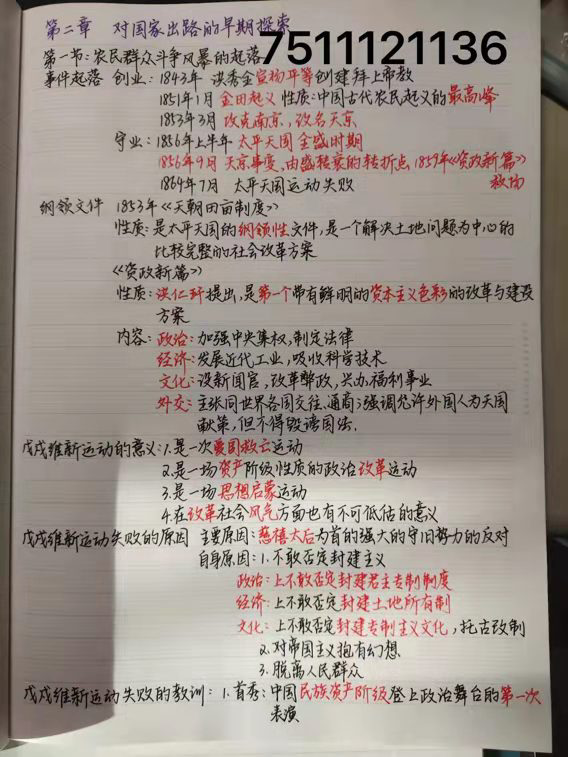 第二章 对国家出路的早期探索
7511121136
第一节:农民群众斗争风暴的起落
事件起落 创业:1843年 洪秀全宣扬平等创建拜上帝教
1851年1月 金田起义 性质:中国古代农民起义的最高峰
1853年3月 攻克南京,改名天京
守业:1856年上半年 太平天国全盛时期
1856年9月 天京事变,由盛转衰的转折点 1859年《资政新篇》
1864年7月 太平天国运动失败
纲领文件 1853年《天朝田亩制度》
性质:是太平天国的纲领性文件,是一个解决土地问题为中心的
比较完整的社会改革方案
《资政新篇》
性质:洪仁玕提出,是第一个带有鲜明的资本主义色彩的改革与建设
方案
内容:政治:加强中央集权,制定法律
经济:发展近代工业,吸收科学技术
文化:设新闻官,改革弊政,兴办福利事业
外交:主张同世界各国交往、通商;强调允许外国人为天国
献策,但不得毁谤国法.
戊戌维新运动的意义:1.是一次爱国救亡运动
2.是一场资产阶级性质的政治改革运动
3.是一场思想启蒙运动
4.在改革社会风气方面也有不可低估的意义
戊戌维新运动失败的原因 主要原因:慈禧太后为首的强大的守旧势力的反对
自身原因:1.不敢否定封建主义
政治:上不敢否定封建君主专制制度
经济:上不敢否定封建土地所有制
文化:上不敢否定封建专制主义文化,托古改制
2.对帝国主义抱有幻想
3.脱离人民群众
戊戌维新运动失败的教训:1.首秀:中国民族资产阶级登上政治舞台的第一次
表演